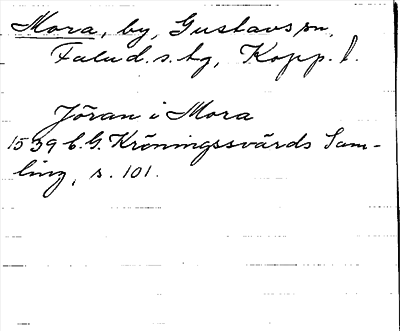 Mora, by, Gustavs sn,
Falu d. s. hg, Kopp. l.
Jöran i Mora
1539 C.G. Kröningssvärds Sam-
ling, s. 101.